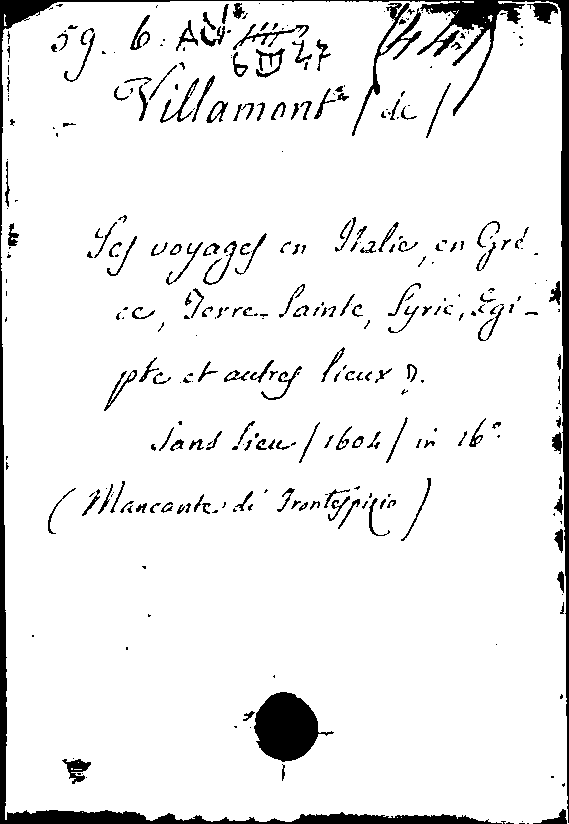 59. 6.
6 III 47
(441)
Villamont / de /
Ses voyages en Italie, en Gré-
ce, Terre-Sainte, Syrie, Egi-
pte et autres lieux
Sans lieu / 1604 / in 16°.
(Mancante di Frontespizio)